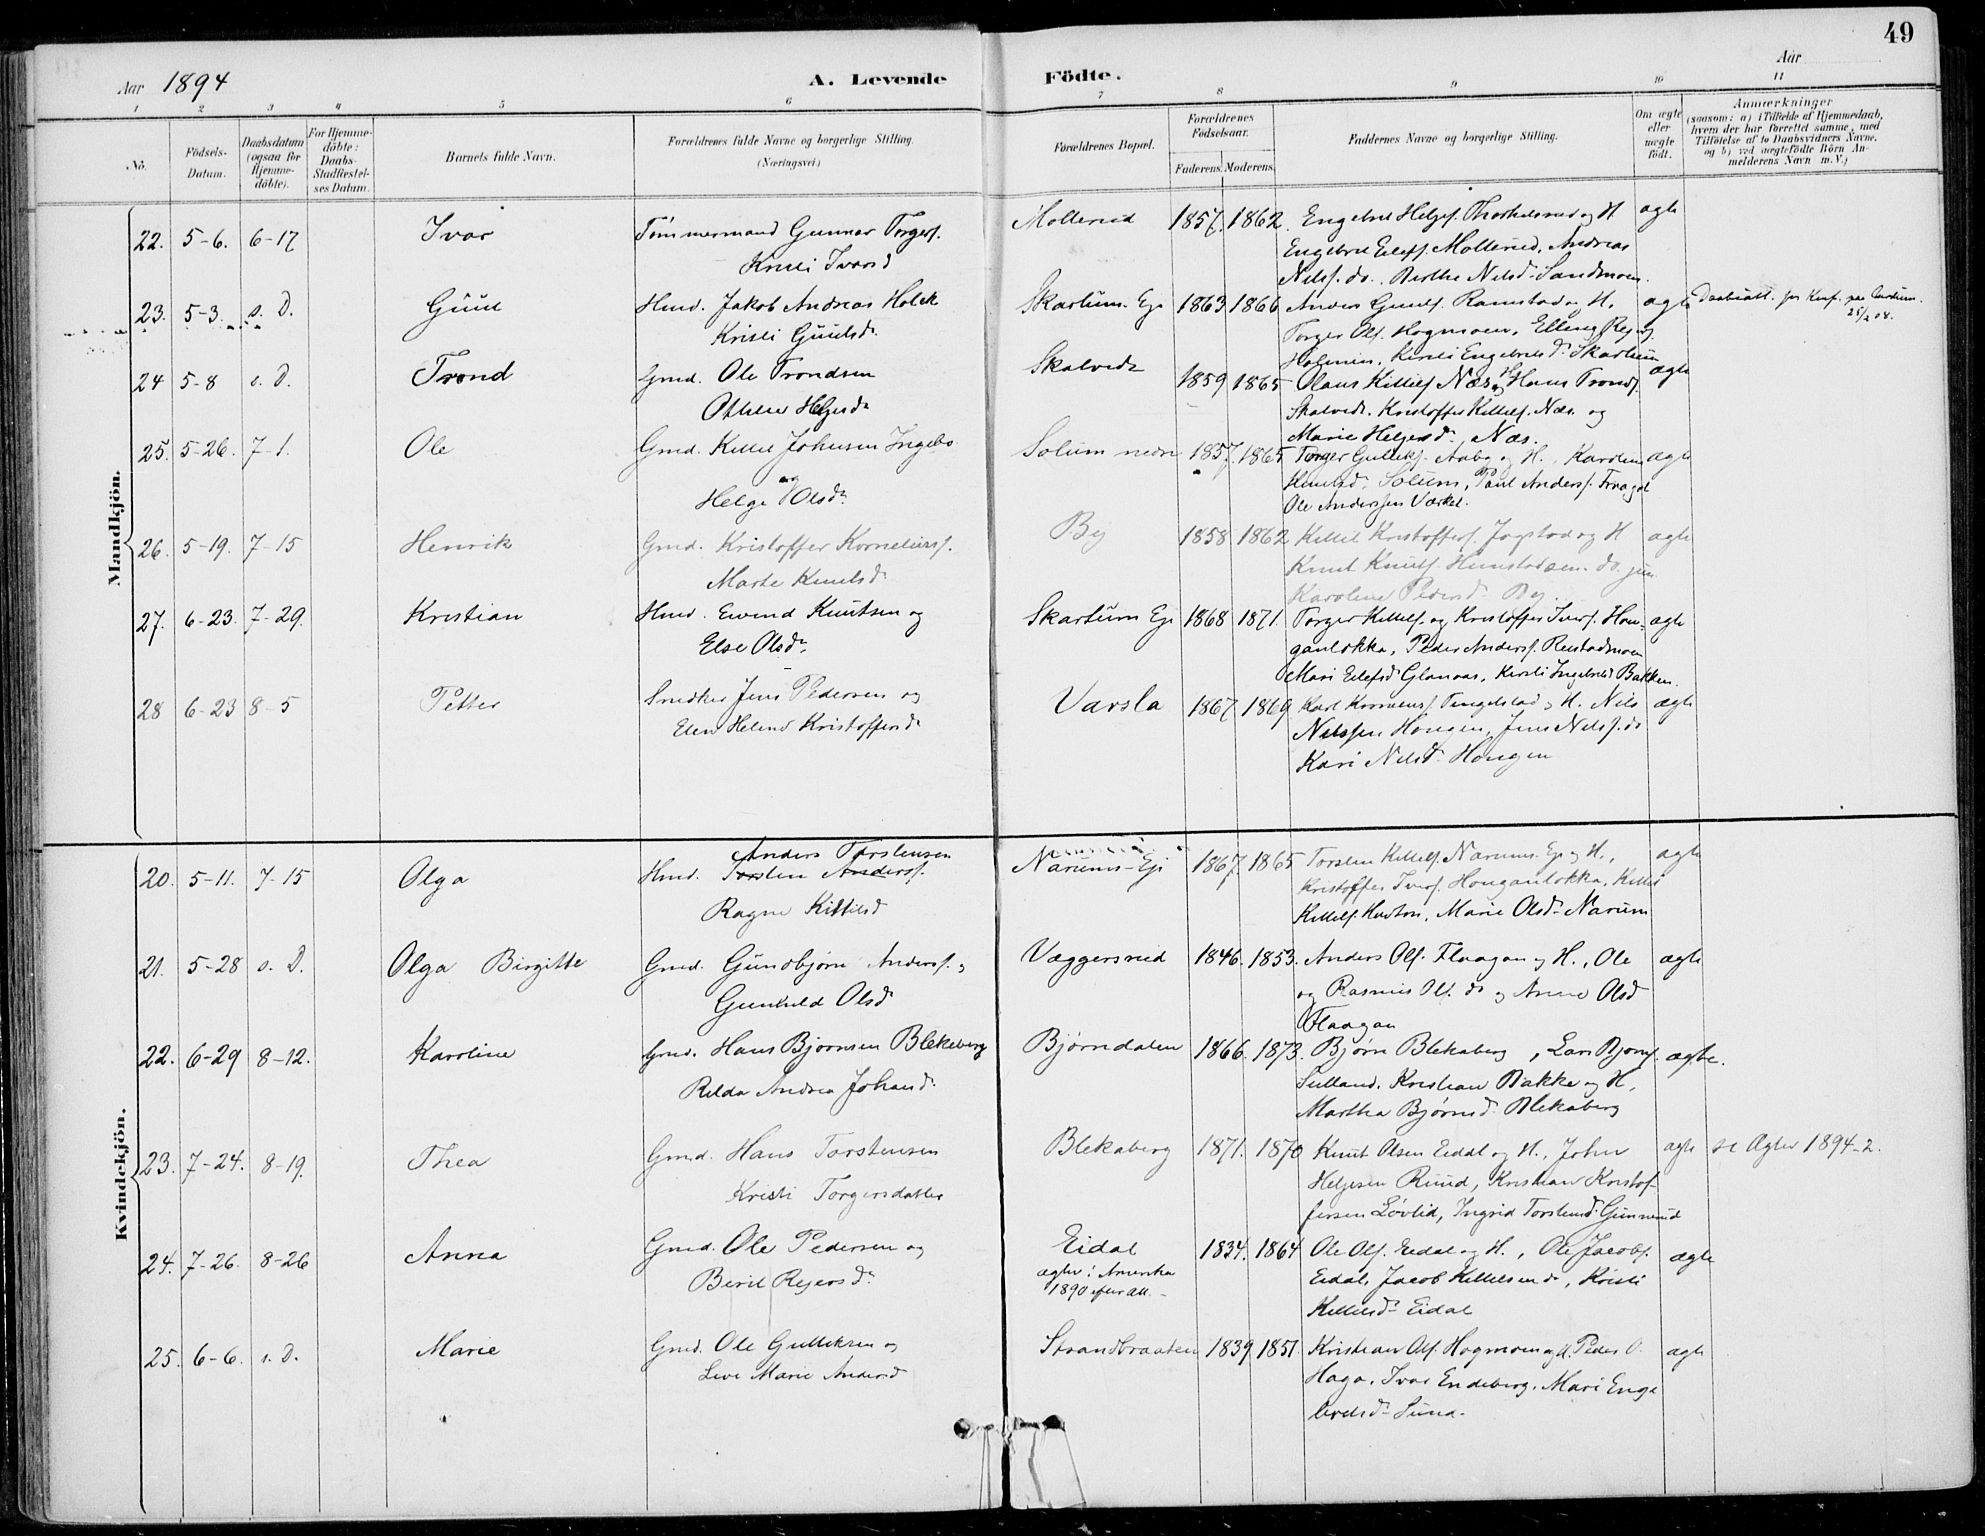 49
Aar 1894
A. Levende Födte.
Aar
1 2 3 4 5 6 7 8 9 10 11
No.
Födsels-Datum.
Daabsdatum (ogsaa for Hjemme-döbte).
For Hjemme-döbte: Daabs-Stadfæstel-ses Datum.
Barnets fulde Navn.
Forældrenes fulde Navne og borgerlige Stilling.
(Næringsvei)
Forældrenes Bopæl.
Forældrenes Födselsaar.
Faderens. Moderens.
Faddernes Navne og borgerlige Stilling.
Om ægte eller uægte födt.
Anmærkninger
(saasom: a) i Tilfælde af Hjemmedaab,
hvem der har forrettet samme, med
Tilföielse af to Daabsvidners Navne.
og b) ved uægtefödte Börn An-
melderens Navn m.V.)
Mandkjön.
22. 5-6. 6-17 Ivar Tömmermand Gunnar Torgersf. Mollerud 1857. 1862. Engebret Helgesf. og H ægte
Kristi Ivarsd Engebret Eilefsf. Mollerud, Andreas
Nilsf. do. Berthe Nilsd. Sandmoen.
23. 5-3. s. D. Guul Hmd. Jakob Andreas Holck Skartum. Eje 1863 1866 Anders Guulsf. Ramstad og H. ægte Daabsatt.
Kristi Guulsd. Torger Olsf. Hogmoen, Elling 25/2 08.
Kirsti Engebretsd. Skartum
24 5-8 s. D. Trond Gmd. Ole Trondsen Skalvedt 1859 1865 Olaus Kittilsf. Næs og H Hans Trondsf. ægte
Helgesdr Skalvedt. Kristoffer Kittilsf. Næs. og
Marie Helgesd. Næs.
25. 5-26. 7-1. Ole Gmd. Kittil Johnsen Ingebo Solum nedre 1857. 1865 Torger Gulliksf. Aaby og H. ægte
og Solum, Paul Andersf.
Helge Olsdr. Ole Anderssen Værket.
26. 5-19. 7-15 Henrik Gmd. Kristoffer Korneliusf. By 1858 1862 Kittil Kristoffersf. og H ægte
Marte Knutsd. Knut Knutsf. do. jun.
Karoline Pedersd. By.
27. 6-23. 7-29. Kristian Hmd. Eivind Knutsen og Skartum Eje 1868 1871. Torger Kittilsf. og Kristoffer Iversf. Hon- ægte
Else Olsdr. ganløkka, Peder Andersf.
Mari Eilefsd Kirsti Ingebretsd Bakken.
28 6-23 8-5 Petter Snedker Jens Pedersen og Varsla 1867 1869 Karl Tingelstad og H. Nils ægte
Elen Helene Kristoffersd. Nilssen Hongen, Jens Nilsf. do
Kari Nilsd. Hongen
Kvindekjön.
20. 5-11. 7-15 Olga Hmd. Torsten Andersf. Anders Torstensen Narums-Eje 1867. 1865 Torsten Kittilsf. Narums-Eje og H., ægte
Ragne Kittilsd Kristoffer Iversf. Honganløkka, Kittil
Kittilsf. Marie Olsd. Narum
21. 5-28 s. D. Olga Birgitte Gmd. Gundbjørn Andersf. og Væggersrud 1846. 1853. Anders Olsf. Flaagan og H., Ole ægte
Gunhild Olsd og Rasmus Olsf. do og Anne Olsd
Flaagan
22. 6-29 8-12. Karoline Gmd. Hans Bjørnsen Blekeberg Bjørndalen 1866. 1873. Bjørn Blekaberg, Lars Bjørnsf. ægte.
Andrea Johansd. Sulland. Kristian Bakke og H.
Martha Bjørnsd. Blekaberg
23. 7-24. 8-19. Thea Gmd. Hans Torstensen Blekaberg 1871. 1870 Knut Olsen Eidal og H., John ægte se Ægtev 1894-2.
Kristi Torgersdatter Helgesen Ruud, Kristian Kristof-
fersen Løvlid, Ingrid Torstensd. Gunnerud
24. 7-26. 8-26 Anna Gmd. Ole Pedersen og Eidal 1834. 1864 Ole Olsf. Eidal og H., Ole Jacobsf. ægte
Berit Rejersdr. ægtev. i Amerika 1890 efter att. Eidal, Jacob Kittilsen do, Kristi
Kittilsd. Eidal
25. 6-6. s. D. Marie Gmd. Ole Gulliksen og Strandbraaten 1839 1851. Kristian Olsf. Hogmoen og H. Peder O. ægte
Marie Andersd Haga, Ivar Endeberg, Mari Enge
bretsd. Lund.